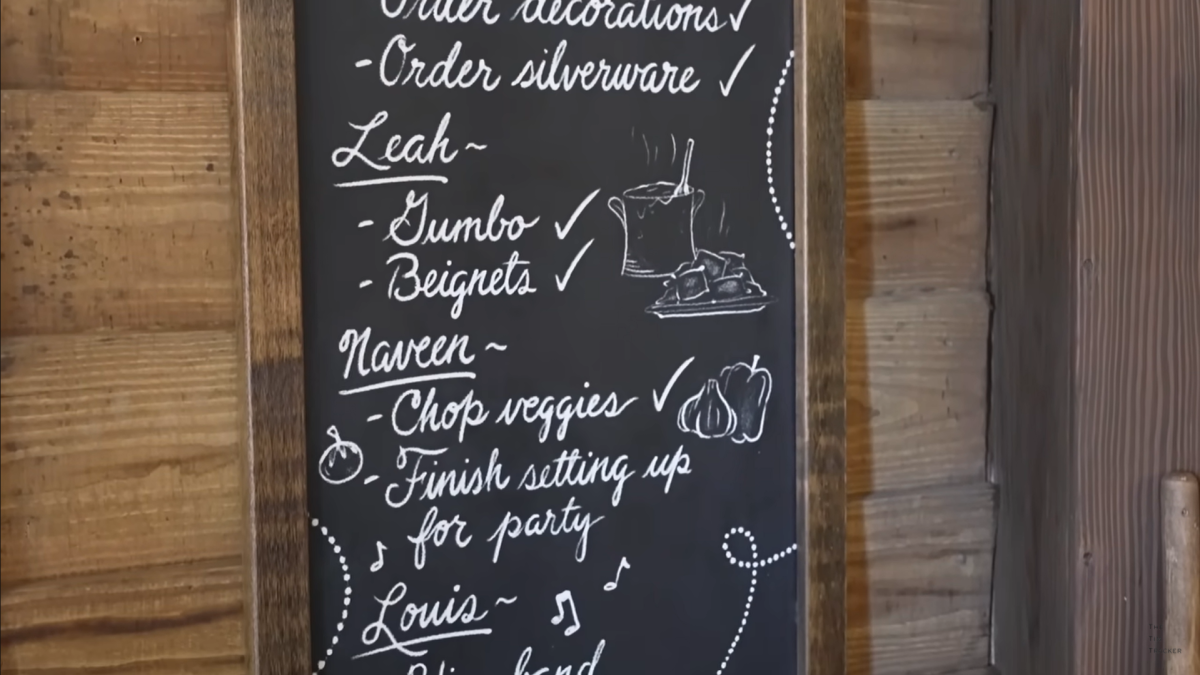 Order decorations ✓
- Order silverware ✓
Leah ~
- Gumbo ✓
- Beignets ✓
Naveen ~
- Chop veggies ✓
- Finish setting up
for party
Louis ~
band